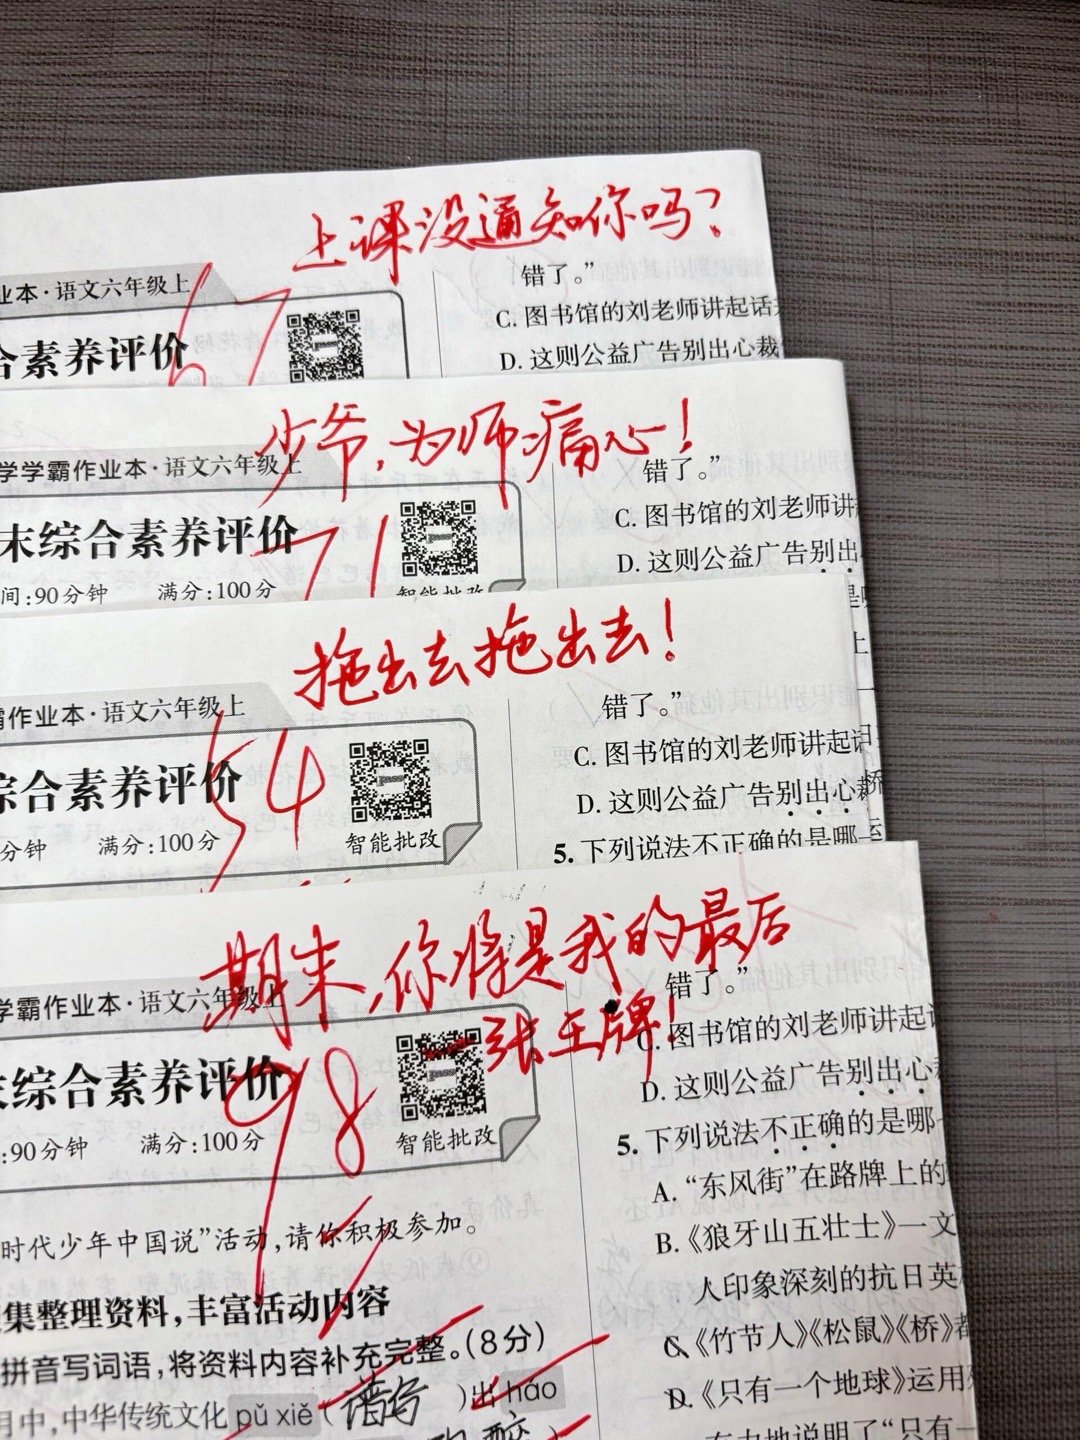 上课没通知你吗?
业本·语文六年级上
67
合素养评价
错了。”
C. 图书馆的刘老师讲起话
D. 这则公益广告别出心裁
少爷,为师痛心!
学学霸作业本·语文六年级上
71
末综合素养评价
间:90分钟 满分:100分
智能批改
错了。”
C. 图书馆的刘老师讲
D. 这则公益广告别出
拖出去拖出去!
霸作业本·语文六年级上
54
综合素养评价
分钟 满分:100分
智能批改
错了。”
C. 图书馆的刘老师讲起
D. 这则公益广告别出心
5. 下列说法不正确的是哪一
期末,你将是我的最后
一张王牌!
学霸作业本·语文六年级上
98
末综合素养评价
:90分钟 满分:100分
智能批改
时代少年中国说”活动,请你积极参加。
集整理资料,丰富活动内容
拼音写词语,将资料内容补充完整。(8分)
月中,中华传统文化 pǔ xiě ( 谱写 )出 hào
错了。”
C. 图书馆的刘老师讲起
D. 这则公益广告别出心
5. 下列说法不正确的是哪
A. “东风街”在路牌上的
B.《狼牙山五壮士》一文
人印象深刻的抗日英
C.《竹节人》《松鼠》《桥》都
D.《只有一个地球》运用
有力地说明了“只有一